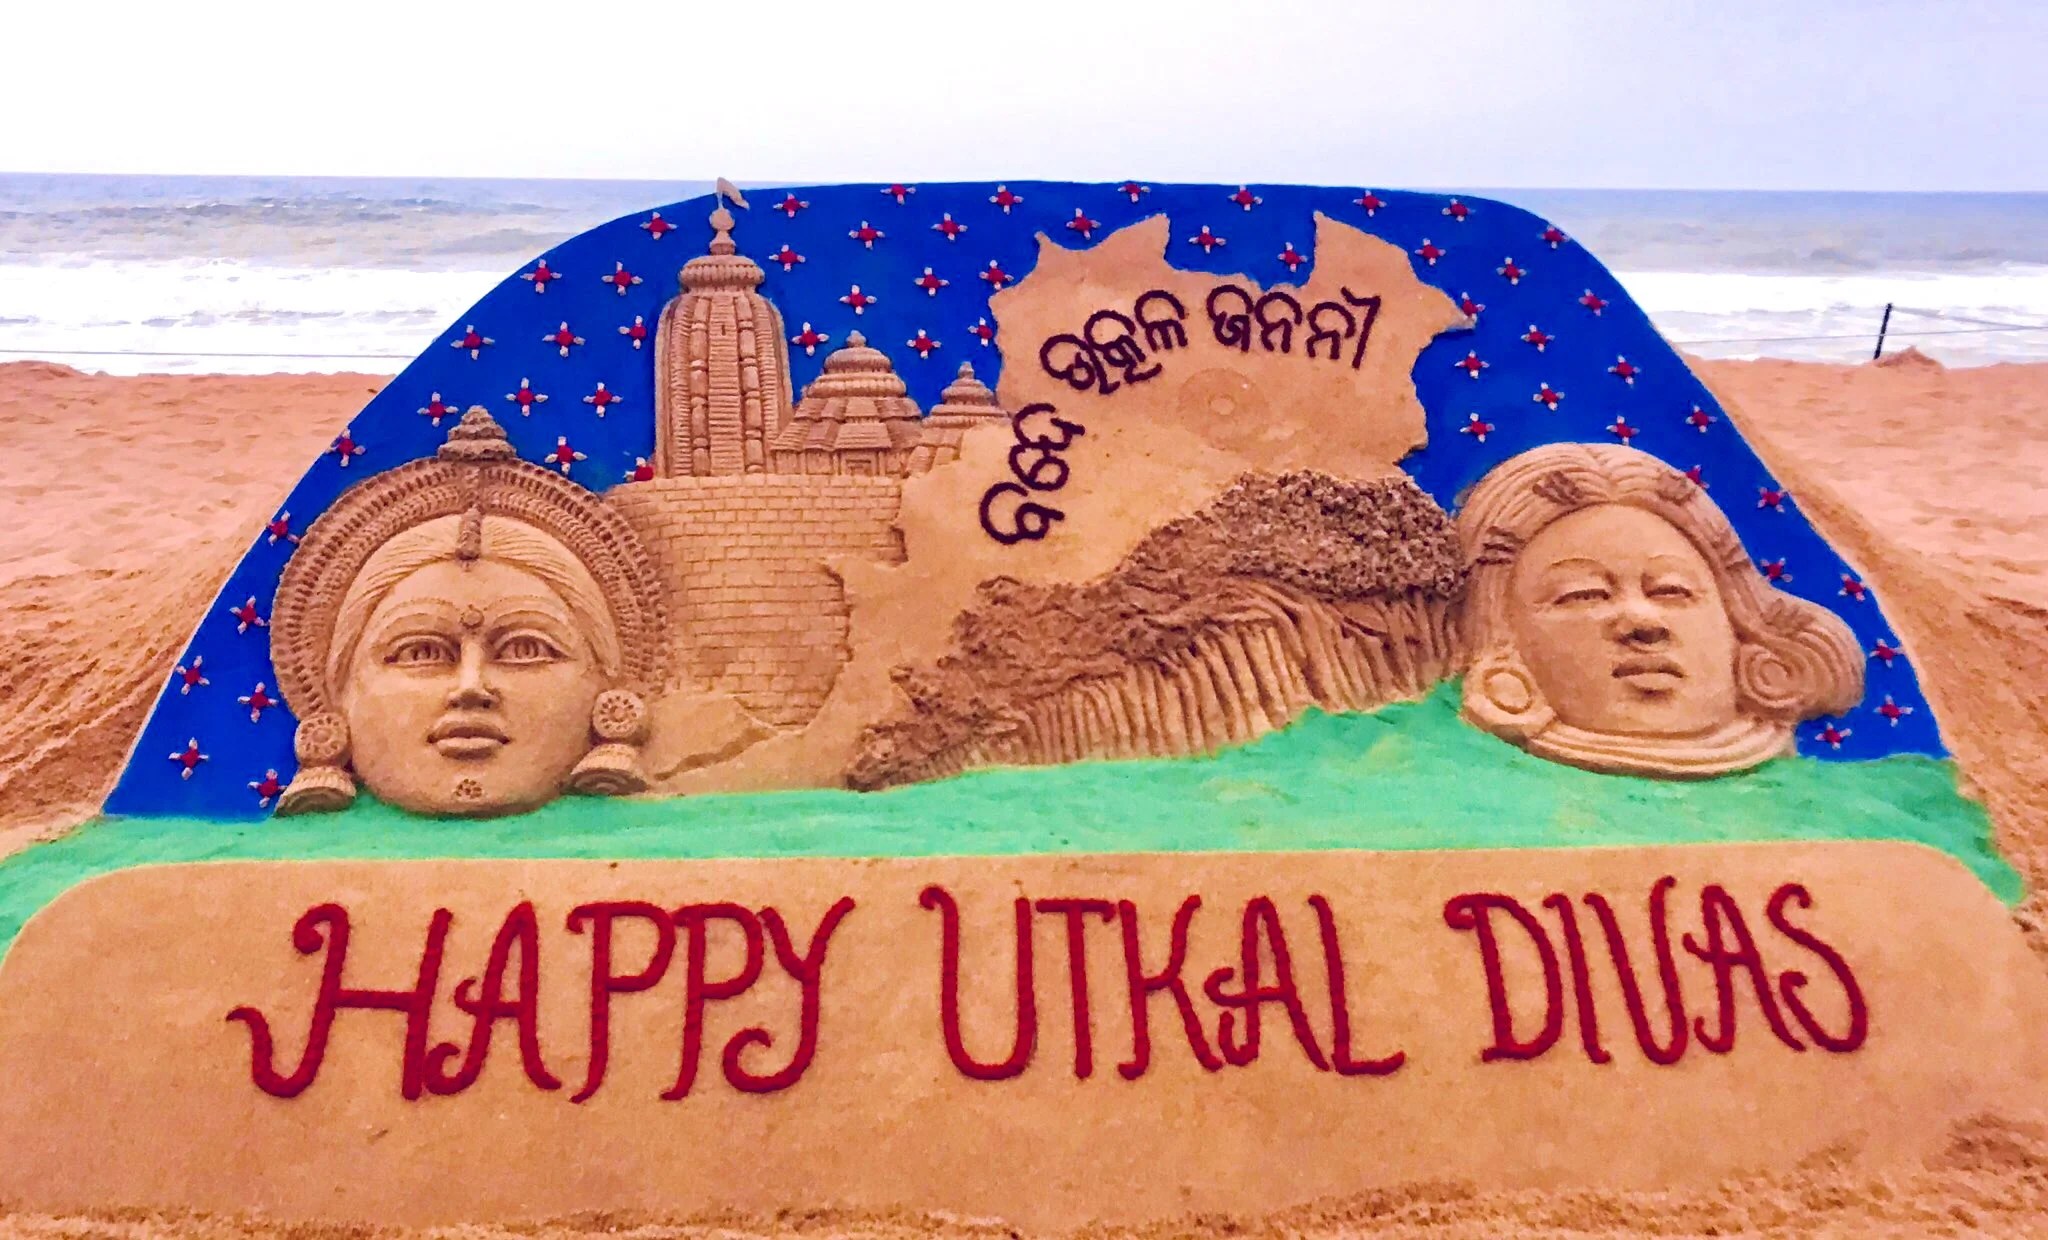 ବନ୍ଦେ ଉତ୍କଳ ଜନନୀ
HAPPY UTKAL DIVAS